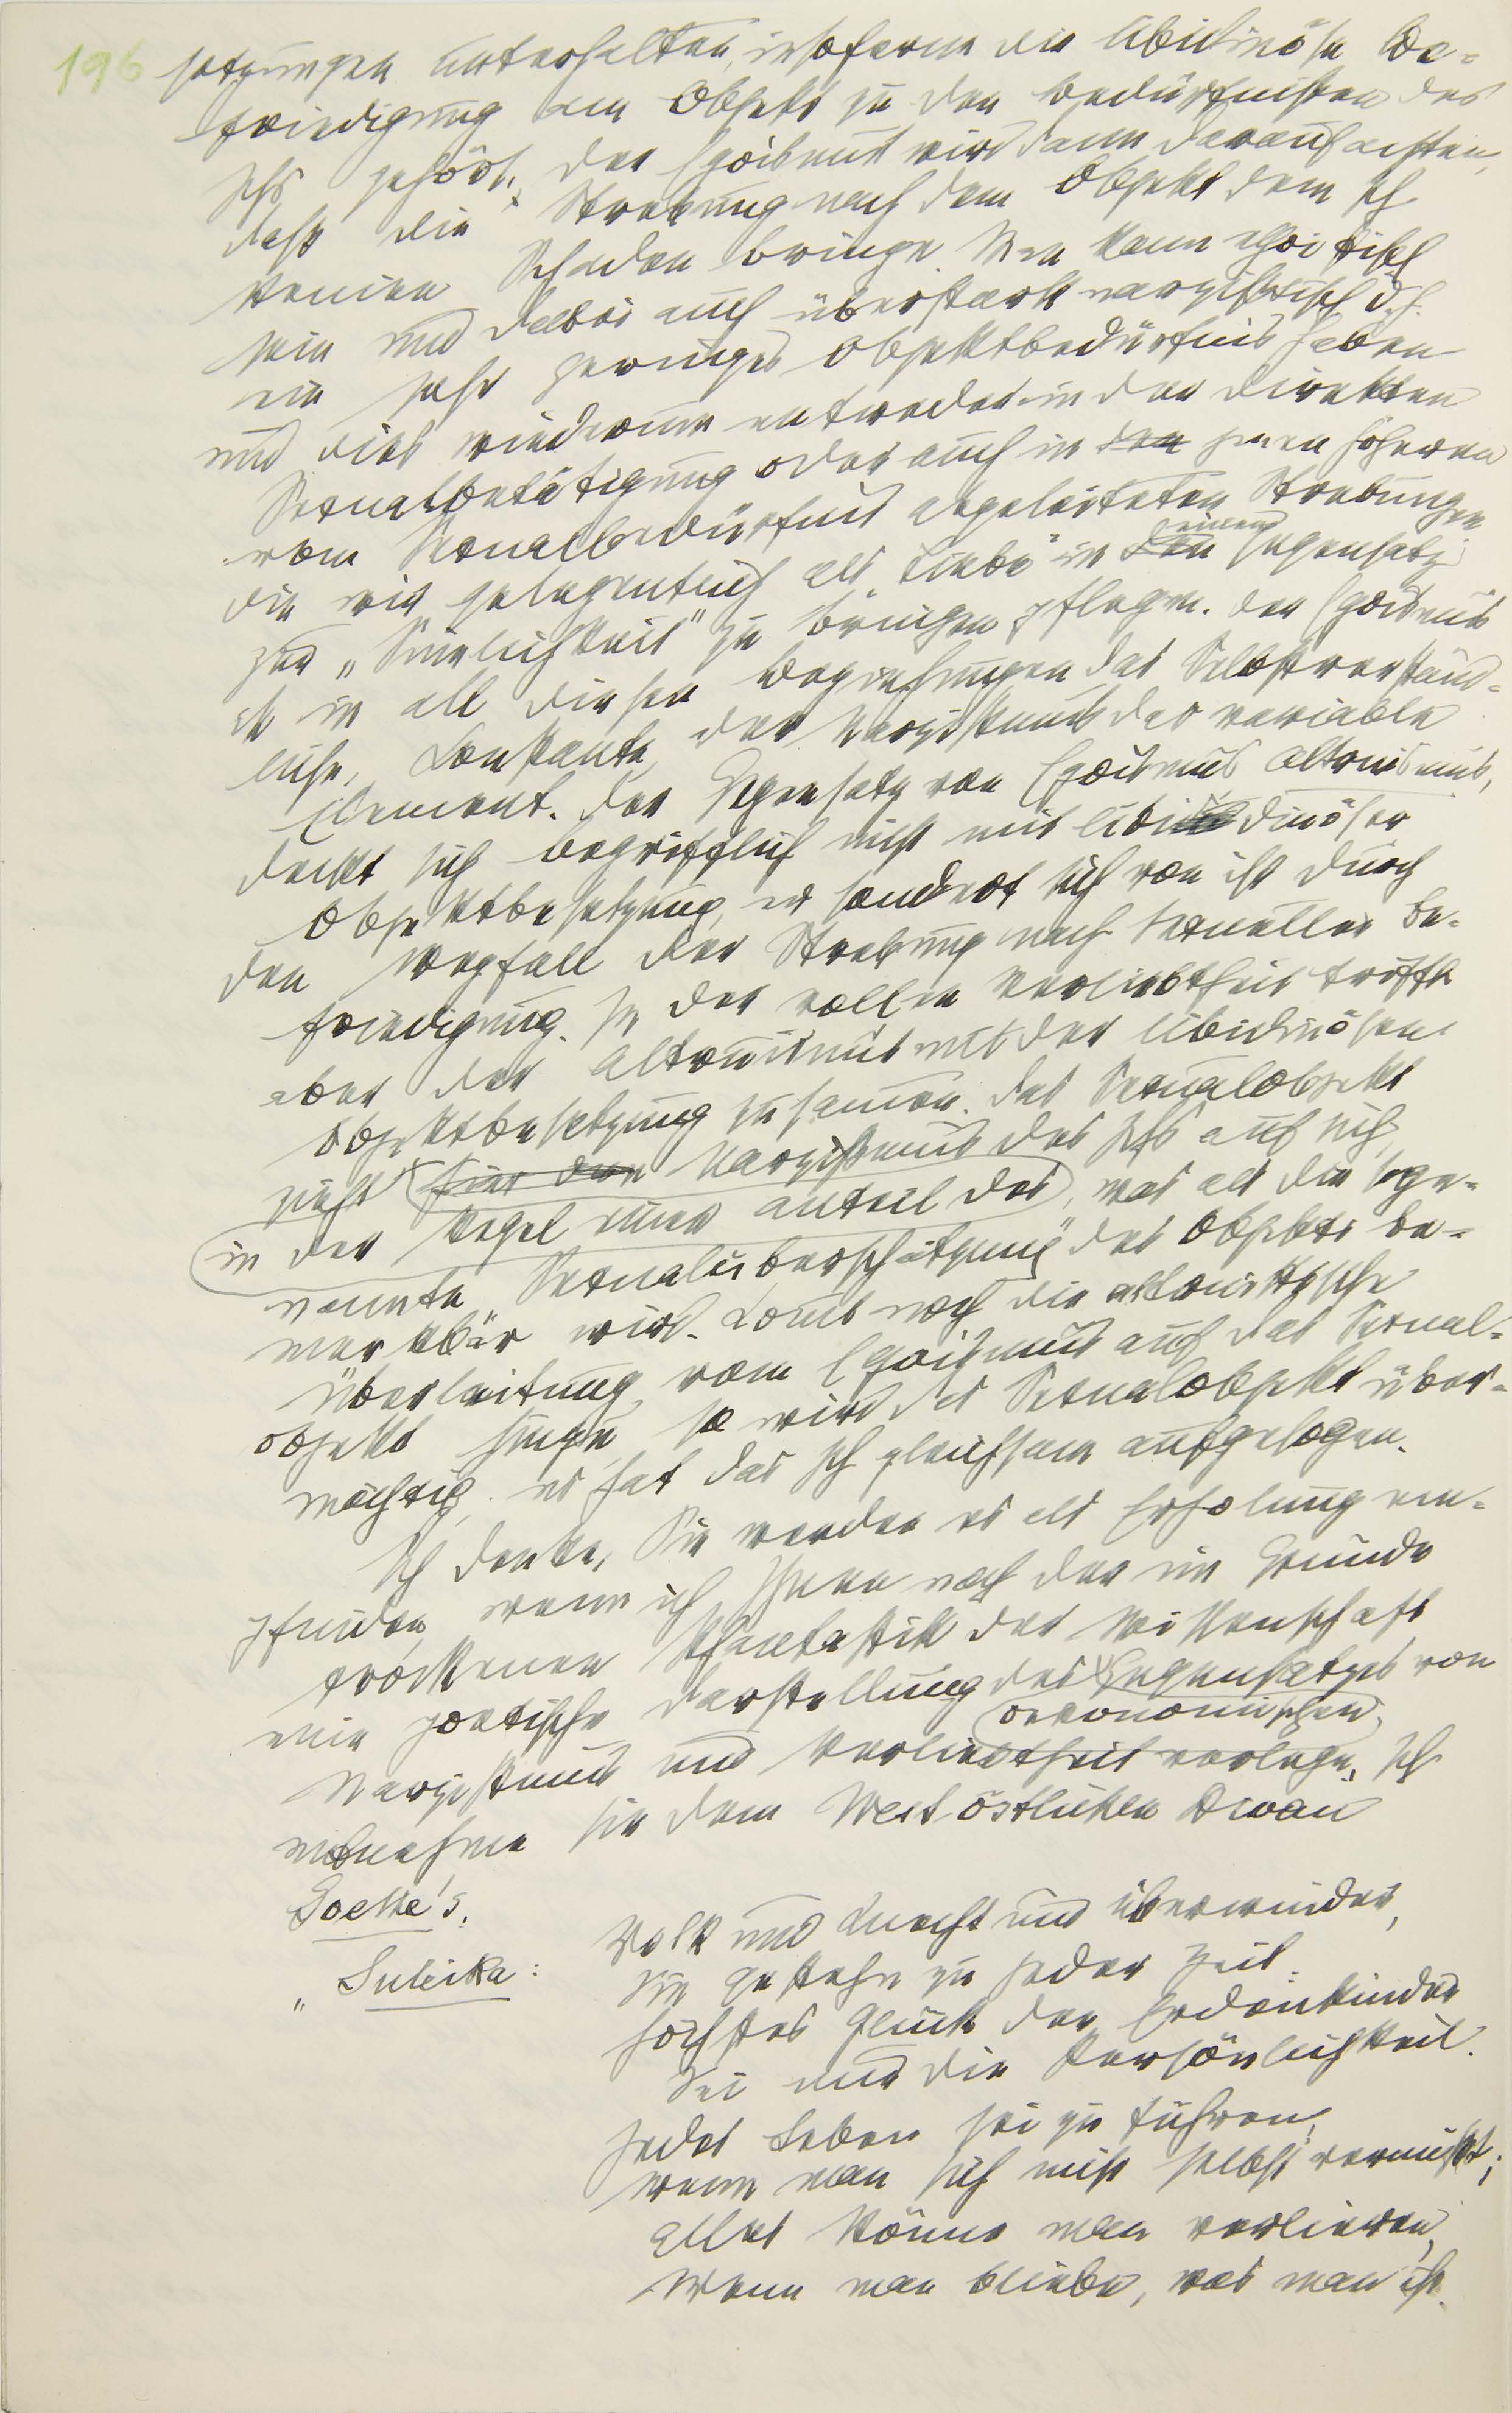 196
setzungen unterhalten, insoferne die libidinöse Be-
friedigung am Objekt zu den Bedürfnissen des
Ichs gehört. Der Egoismus wird dann darauf achten,
daß die Strebung nach dem Objekt dem Ich
keinen Schaden bringe. Man kann egoistisch
sein und dabei auch überstark narzißtisch d. h.
ein sehr geringes Objektbedürfnis haben
und dies wiederum entweder in der direkten
Sexualbetätigung oder auch in den jenen höheren
vom Sexualbedürfnis abgeleiteten Strebungen
einen
die wir gelegentlich als „Liebe" in den Gegensatz
zur „Sinnlichkeit" zu bringen pflegen. Der Egoismus
ist in all diesen Beziehungen das Selbstverständ-
liche, Konstante, der Narzißmus das variable
Element. Der Gegensatz von Egoismus Altruismus,
deckt sich begrifflich nicht mit libidinöser
Objektbesetzung, er sondert sich von ihr durch
den Wegfall der Strebung nach sexueller Be-
friedigung. In der vollen Verliebtheit trifft
aber der Altruismus mit der libidinösen
Objektbesetzung zusammen. Das Sexualobjekt
zieht Narzißmus des Ichs auf sich,
in der Regel einen Anteil des, was als die soge-
nannte „Sexualüberschätzung" des Objekts be-
merkbar wird. Kommt noch die altruistische
Überleitung vom Egoismus auf das Sexual-
objekt hinzu, so wird das Sexualobjekt über-
mächtig; es hat das Ich gleichsam aufgesogen.
Ich denke, Sie werden es als Erholung em-
pfinden, wenn ich Ihnen nach der im Grunde
trockenen Phantastik der Wissenschaft
eine poetische Darstellung des Gegensatzes von
oekonomischen
Narzißmus und Verliebtheit vorlege. Ich
entnehme sie dem Westöstlichen Divan
Goethe's.
„Suleika:
Volk und Knecht und Überwinder,
Sie gestehn zu jeder Zeit:
Höchstes Glück der Erdenkinder
Sei nur die Persönlichkeit.
Jedes Leben sei zu führen,
Wenn man sich nicht selbst vermißt;
Alles könne man verlieren,
Wenn man bliebe, was man ist.